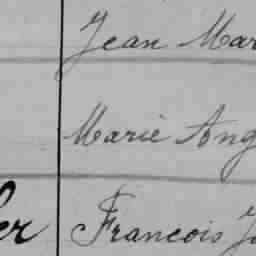 Jean Mar
Marie Ang
er Francois J